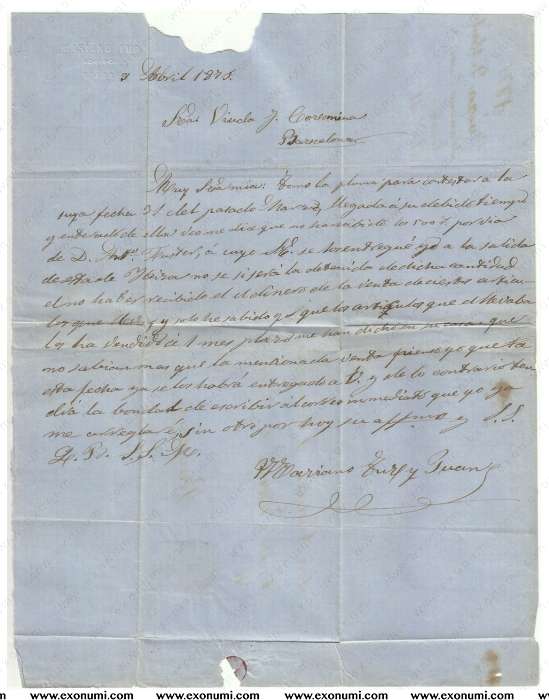 3 Abril 1875.
Sra. Viuda J. Coromina
Barcelona
Muy Sra mia: Tomo la pluma para contestar a la
suya fecha 31 del pasado Marzo, llegada á su debido tiempo
y enterado de ella veo me dice que no ha recibido los por via
de D. Antº á cuyo Sr. se los entregué yo a la salida
de esta de Ibiza no se si será la detenida de dicha cantidad
el no haber recibido el dinero de la venta de ciertos articu
los que y solo he sabido yo que los articulos que el llevaba
los ha vendido á 1 mes plazo me han dicho en su casa que
no sabian mas que la mencionada venta pienso yo que ta
esta fecha ya se los habrá entregado a V. y de lo contrario ten
dia la bondad de escribir al correo inmediato que yo ya
me arreglaré, sin otro por hoy su affmo y S. S.
Q. B. S. S. M.
Mariano Tur y Juan
www.exonumi.com www.exonumi.com www.exonumi.com